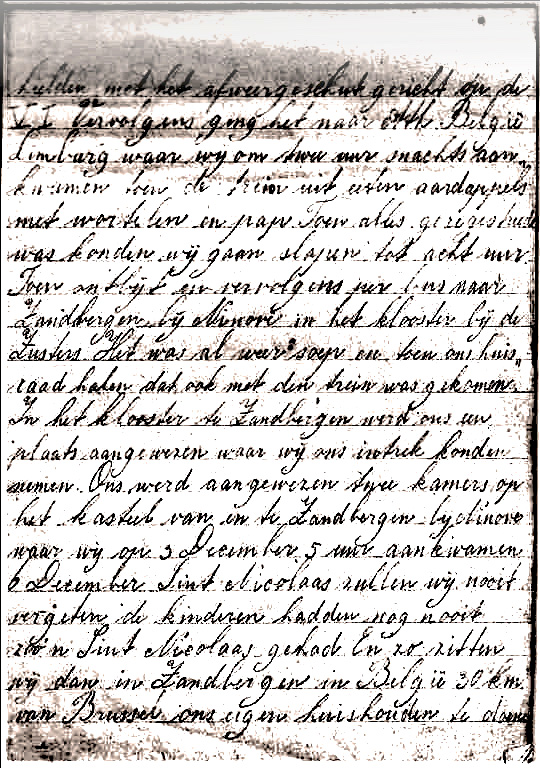 hielden met het afweergeschut gericht op de
V I Vervolgens ging het naar Belgie
Limburg waar wij om twee uur snachts aan„
kwamen toen de trein uit eten aardappels
met wortelen en pap Toen alles geregistreerd
was konden wij gaan slapen tot acht uur
Toen ontbijt en vervolgens per bus naar
Zandbergen bij Ninove in het klooster bij de
Zusters Het was al weer soep en toen ons huis„
raad halen dat ook met den trein was gekomen.
In het klooster te Zandbergen werd ons een
plaats aangewezen waar wij ons intrek konden
nemen. Ons werd aangewezen twee kamers op
het kasteel van en te Zandbergen bij Ninove
waar wij op 3 December 5 uur aankwamen
6 December Sint Nicolaas zullen wij nooit
vergeten de kinderen hadden nog nooit
zoo'n Sint Nicolaas gehad En zo zitten
wij dan in Zandbergen in België 30 km
van Brussel ons eigen huishouden te doen